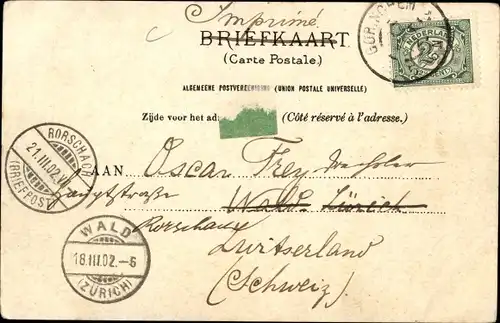 Imprimé
BRIEFKAART
(Carte Postale.)
ALGEMEENE POSTVEREENIGING (UNION POSTALE UNIVERSELLE)
Zijde voor het adr (Côté réservé à l'adresse.)
NEDERLAND
2½
GORINCHEM
RORSCHACH
21.III.02.VI
(BRIEFPOST)
AAN Oscar Frey
Hauptstraße Wald Zürich
Rorschach
WALD
18.III.02.-6
(ZÜRICH)
Zwitserland
(Schweiz)